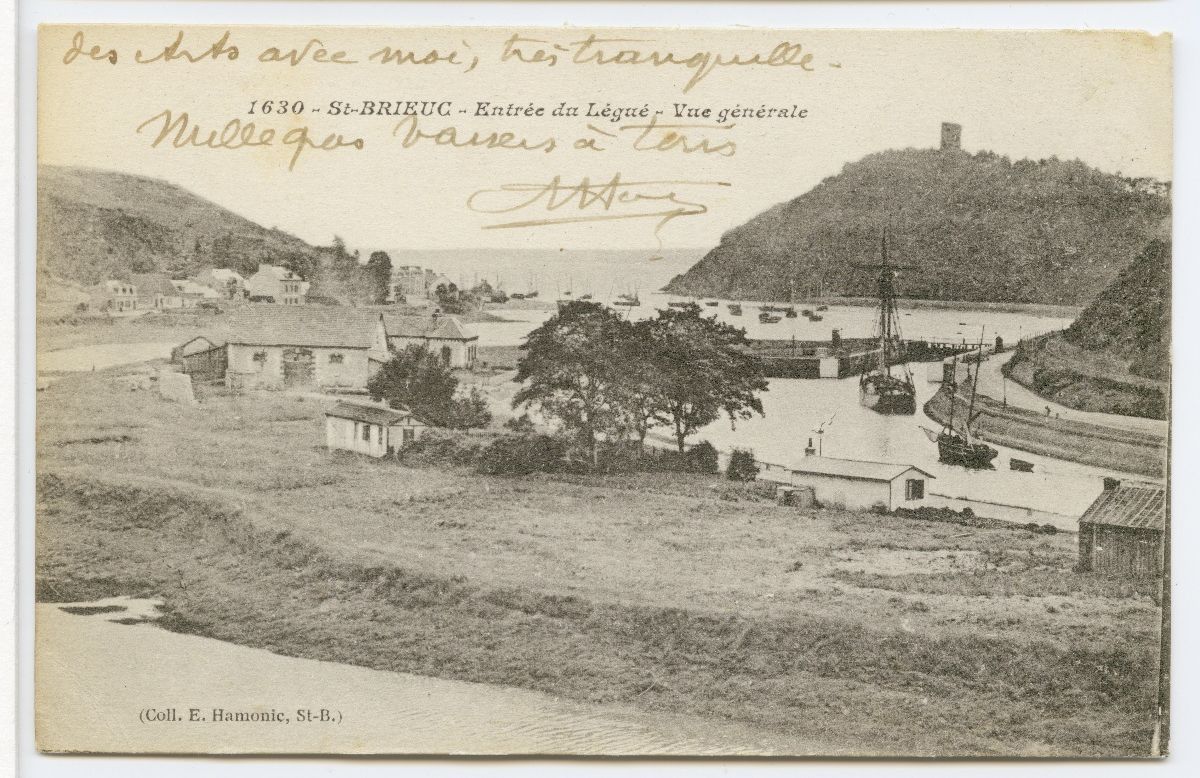 des Arts avec moi, très tranquille -
1630 - St-BRIEUC - Entrée du Légué - Vue générale
Mille gros baisers à tous
(Coll. E. Hamonic, St-B.)